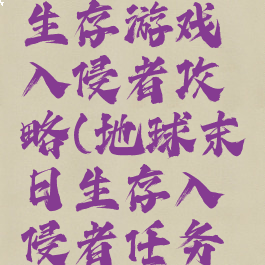 生存游戏
入侵者攻
略(地球末
日生存入
侵者任务